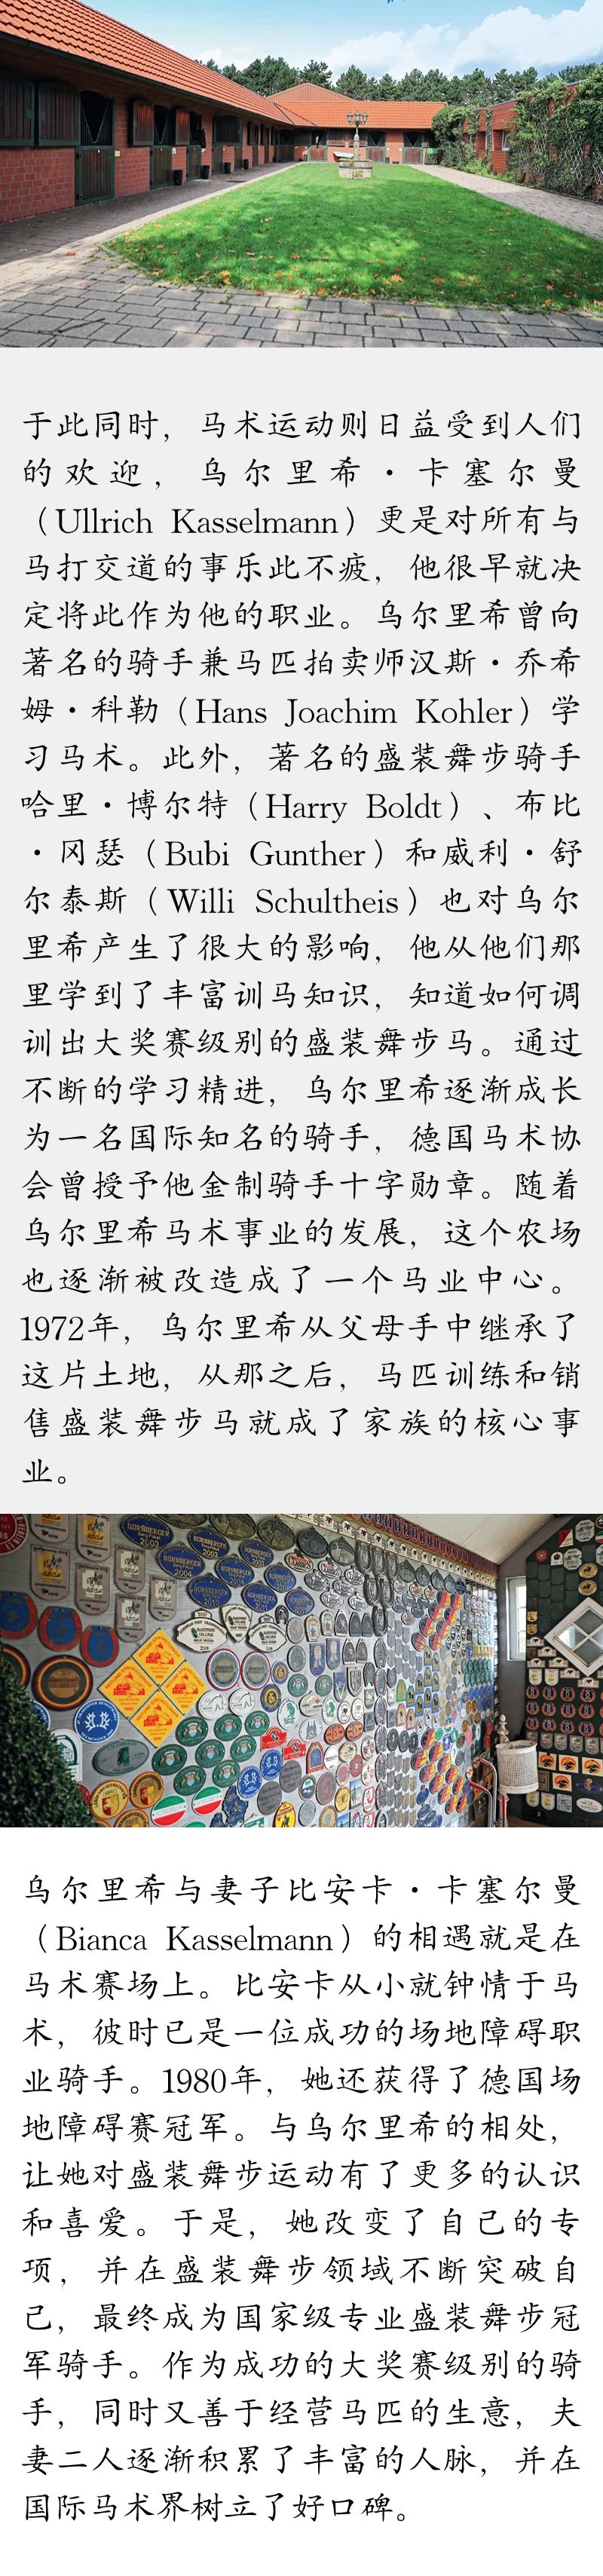 于此同时，马术运动则日益受到人们
的欢迎，乌尔里希·卡塞尔曼
（Ullrich Kasselmann）更是对所有与
马打交道的事乐此不疲，他很早就决
定将此作为他的职业。乌尔里希曾向
著名的骑手兼马匹拍卖师汉斯·乔希
姆·科勒（Hans Joachim Kohler）学
习马术。此外，著名的盛装舞步骑手
哈里·博尔特（Harry Boldt）、布比
·冈瑟（Bubi Gunther）和威利·舒
尔泰斯（Willi Schultheis）也对乌尔
里希产生了很大的影响，他从他们那
里学到了丰富训马知识，知道如何调
训出大奖赛级别的盛装舞步马。通过
不断的学习精进，乌尔里希逐渐成长
为一名国际知名的骑手，德国马术协
会曾授予他金制骑手十字勋章。随着
乌尔里希马术事业的发展，这个农场
也逐渐被改造成了一个马业中心。
1972年，乌尔里希从父母手中继承了
这片土地，从那之后，马匹训练和销
售盛装舞步马就成了家族的核心事
业。
NURNBERGER
2003
NURNBERGER
2002
NURNBERGER
2004
NURNBERGER
2010
乌尔里希与妻子比安卡·卡塞尔曼
（Bianca Kasselmann）的相遇就是在
马术赛场上。比安卡从小就钟情于马
术，彼时已是一位成功的场地障碍职
业骑手。1980年，她还获得了德国场
地障碍赛冠军。与乌尔里希的相处，
让她对盛装舞步运动有了更多的认识
和喜爱。于是，她改变了自己的专
项，并在盛装舞步领域不断突破自
己，最终成为国家级专业盛装舞步冠
军骑手。作为成功的大奖赛级别的骑
手，同时又善于经营马匹的生意，夫
妻二人逐渐积累了丰富的人脉，并在
国际马术界树立了好口碑。